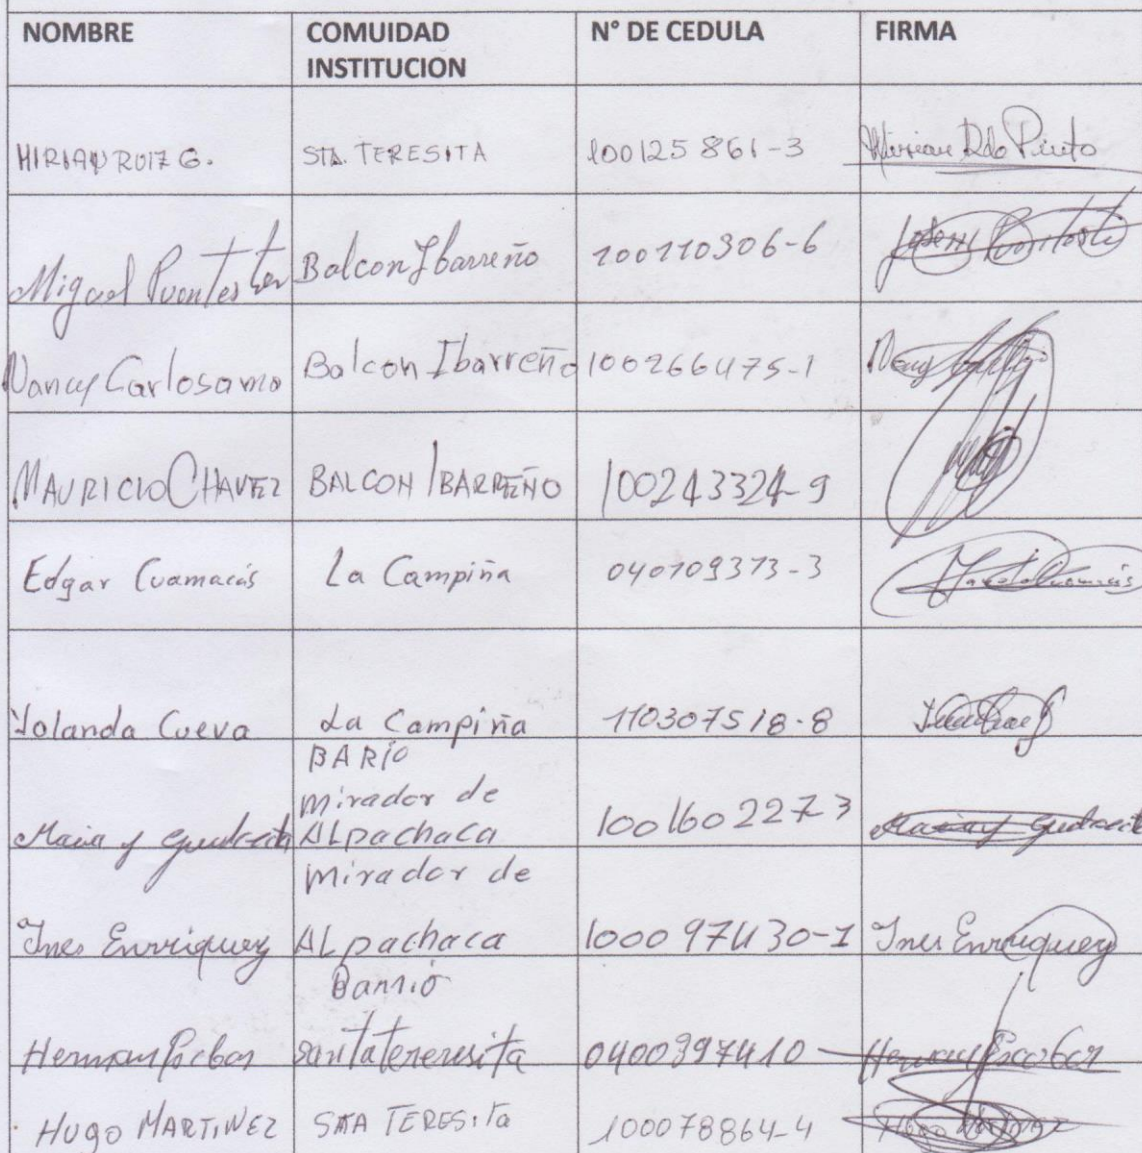 NOMBRE COMUIDAD INSTITUCION N° DE CEDULA FIRMA
MIRIAN RUIZ G. STA. TERESITA 100125861-3 Miriam R de Pinto
Miguel Puentestar Balcon Ibarreño 100110306-6
Nancy Carlosama Balcon Ibarreño 100266475-1 Nancy
MAURICIO CHAVEZ BALCON IBARREÑO 100243324-9
Edgar Cuamacás La Campiña 040109373-3
Yolanda Cueva La Campiña 110307518-8
BARIO
mirador de
Maria ALpachaca 100160227-3 Maria
mirador de
Ines Enriquez ALpachaca 100097430-1 Ines Enriquez
Barrió
Hernan santatereresita 0400397410 Hernan Escobar
HUGO MARTINEZ STA TERESITA 100078864-4 Hugo